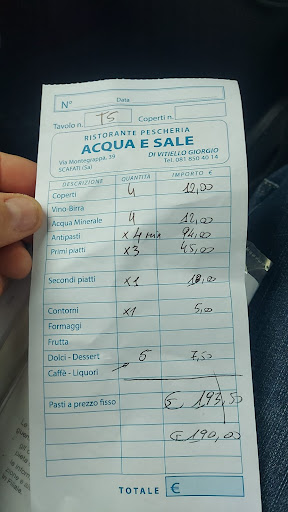 N° Data
Tavolo n. T5 Coperti n.
RISTORANTE PESCHERIA
ACQUA E SALE
Via Montegrappa, 39 DI VITIELLO GIORGIO
SCAFATI (Sa) Tel. 081 850 40 14
DESCRIZIONE QUANTITÀ IMPORTO €
Coperti 4 12,00
Vino-Birra
Acqua Minerale 4 12,00
Antipasti x 4 mix 94,00
Primi piatti x3 45,00
Secondi piatti x1 18,00
Contorni x1 5,00
Formaggi
Frutta
Dolci - Dessert 5 7,50
Caffè - Liquori
Pasti a prezzo fisso € 193,50
€ 190,00
TOTALE €